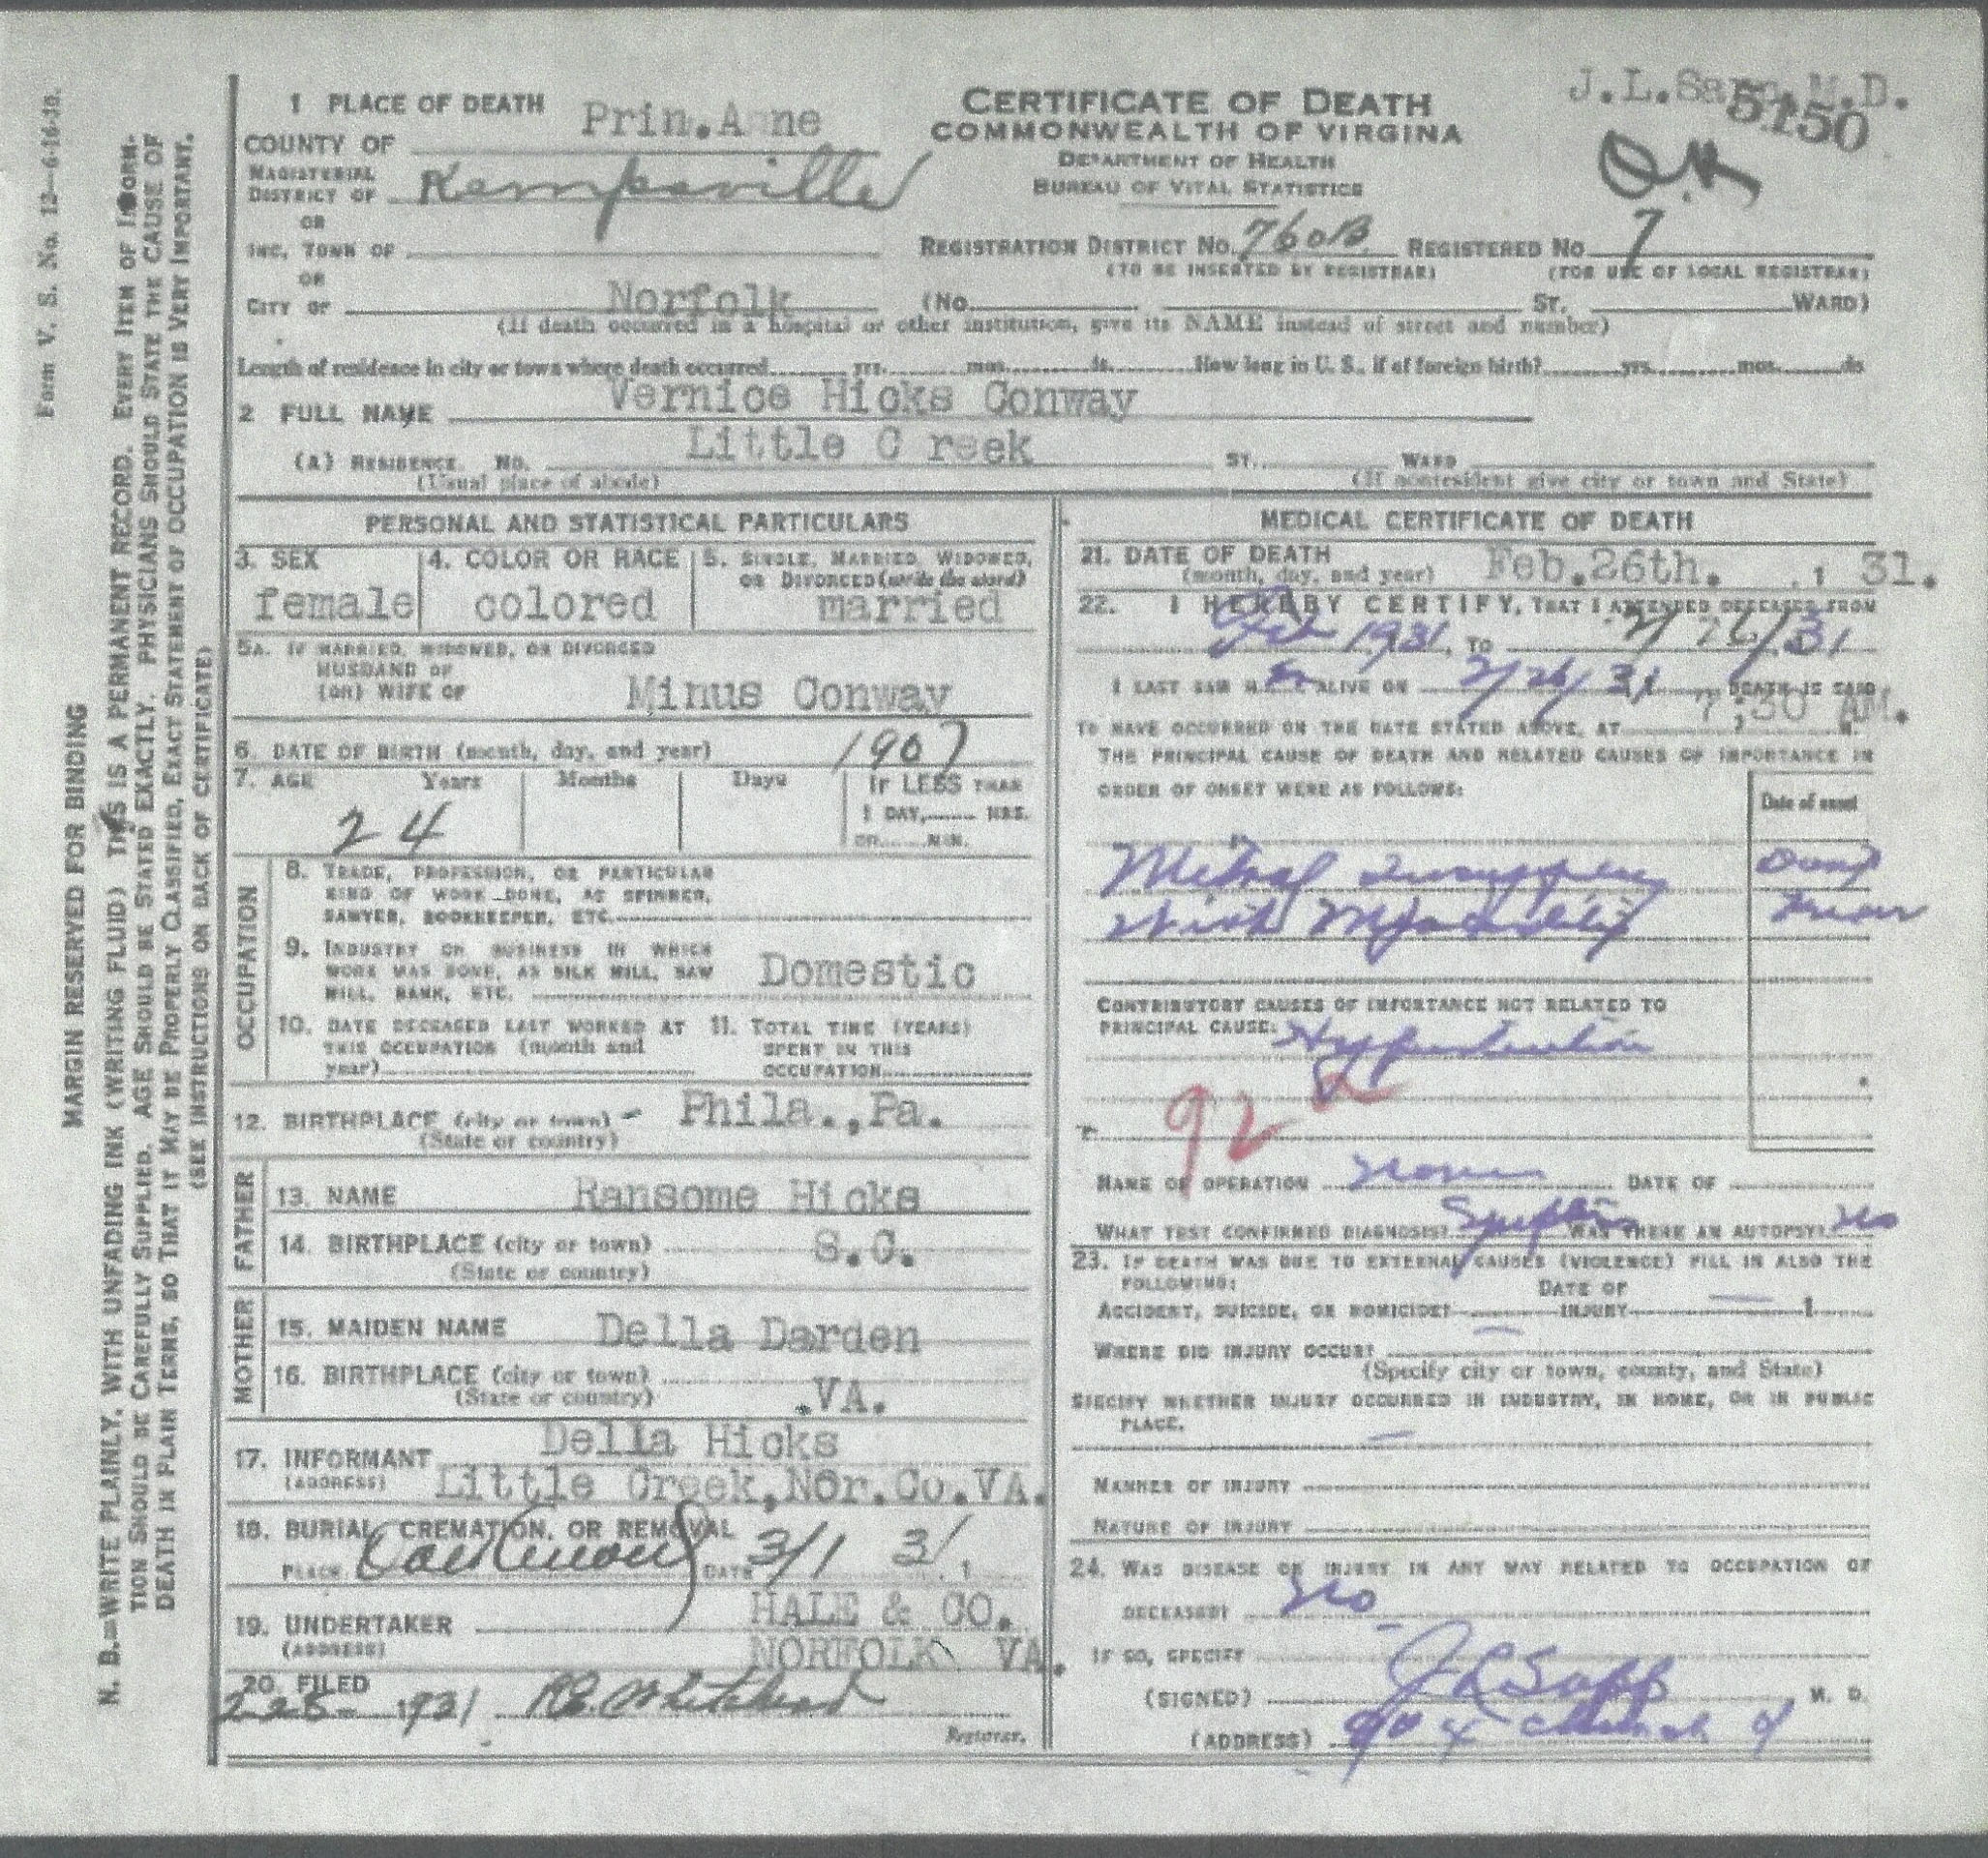 J.L.Sapp,M.D.
5150
OK
1 PLACE OF DEATH
COUNTY OF Prin.Anne
MAGISTERIAL DISTRICT OF Kempsville
OR
INC. TOWN OF
OR
CITY OF Norfolk
CERTIFICATE OF DEATH
COMMONWEALTH OF VIRGINIA
DEPARTMENT OF HEALTH
BUREAU OF VITAL STATISTICS
REGISTRATION DISTRICT NO. 760B REGISTERED NO 7
(TO BE INSERTED BY REGISTRAR) (FOR USE OF LOCAL REGISTRAR)
(No. ST. WARD)
(If death occurred in a hospital or other institution, give its NAME instead of street and number)
Length of residence in city or town where death occurred yrs. mos. ds. How long in U. S., if of foreign birth? yrs. mos. ds
2 FULL NAME Vernice Hicks Conway
(A) RESIDENCE. NO. Little C reek ST., WARD
(Usual place of abode) (If nonresident give city or town and State)
PERSONAL AND STATISTICAL PARTICULARS
3. SEX female
4. COLOR OR RACE colored
5. SINGLE, MARRIED, WIDOWED, OR DIVORCED (write the word) married
5A. IF MARRIED, WIDOWED, OR DIVORCED
HUSBAND OF
(OR) WIFE OF Minus Conway
6. DATE OF BIRTH (month, day, and year) 1907
7. AGE Years Months Days IF LESS THAN
24 1 DAY, HRS.
OR MIN.
OCCUPATION
8. TRADE, PROFESSION, OR PARTICULAR
KIND OF WORK DONE, AS SPINNER,
SAWYER, BOOKKEEPER, ETC.
9. INDUSTRY OR BUSINESS IN WHICH
WORK WAS DONE, AS SILK MILL, SAW
MILL, BANK, ETC. Domestic
10. DATE DECEASED LAST WORKED AT
THIS OCCUPATION (month and
year)
11. TOTAL TIME (YEARS)
SPENT IN THIS
OCCUPATION
12. BIRTHPLACE (city or town) - Phila.,Pa.
(State or country)
FATHER
13. NAME Ransome Hicks
14. BIRTHPLACE (city or town) S.C.
(State or country)
MOTHER
15. MAIDEN NAME Della Darden
16. BIRTHPLACE (city or town)
(State or country) .VA.
17. INFORMANT Della Hicks
(ADDRESS) Little Creek,Nor.Co.VA.
18. BURIAL, CREMATION, OR REMOVAL
PLACE DATE 3/1 31
19. UNDERTAKER HALE & CO.
(ADDRESS) NORFOLK VA.
20. FILED
1931 Whitehead
Registrar.
MEDICAL CERTIFICATE OF DEATH
21. DATE OF DEATH
(month, day, and year) Feb.26th. , 1 31.
22. I HEREBY CERTIFY, THAT I ATTENDED DECEASED FROM
Feb 1931, TO 2/26/31
I LAST SAW HER ALIVE ON 2/26/31, DEATH IS SAID
TO HAVE OCCURRED ON THE DATE STATED ABOVE, AT 7;30 AM.
THE PRINCIPAL CAUSE OF DEATH AND RELATED CAUSES OF IMPORTANCE IN
ORDER OF ONSET WERE AS FOLLOWS:
Date of onset
Mitral
with
CONTRIBUTORY CAUSES OF IMPORTANCE NOT RELATED TO
PRINCIPAL CAUSE:
92 a
NAME OF OPERATION None DATE OF
WHAT TEST CONFIRMED DIAGNOSIS? WAS THERE AN AUTOPSY? No
23. IF DEATH WAS DUE TO EXTERNAL CAUSES (VIOLENCE) FILL IN ALSO THE
FOLLOWING:
ACCIDENT, SUICIDE, OR HOMICIDE? DATE OF INJURY 1
WHERE DID INJURY OCCUR?
(Specify city or town, county, and State)
SPECIFY WHETHER INJURY OCCURRED IN INDUSTRY, IN HOME, OR IN PUBLIC
PLACE.
MANNER OF INJURY
NATURE OF INJURY
24. WAS DISEASE OR INJURY IN ANY WAY RELATED TO OCCUPATION OF
DECEASED? No
IF SO, SPECIFY
(SIGNED) J L Sapp, M. D.
(ADDRESS) Church
Form V. S. No. 12—6-16-30.
MARGIN RESERVED FOR BINDING
N. B.—WRITE PLAINLY, WITH UNFADING INK (WRITING FLUID) THIS IS A PERMANENT RECORD. EVERY ITEM OF INFORM-
TION SHOULD BE CAREFULLY SUPPLIED. AGE SHOULD BE STATED EXACTLY. PHYSICIANS SHOULD STATE THE CAUSE OF
DEATH IN PLAIN TERMS, SO THAT IT MAY BE PROPERLY CLASSIFIED, EXACT STATEMENT OF OCCUPATION IS VERY IMPORTANT.
(SEE INSTRUCTIONS ON BACK OF CERTIFICATE)